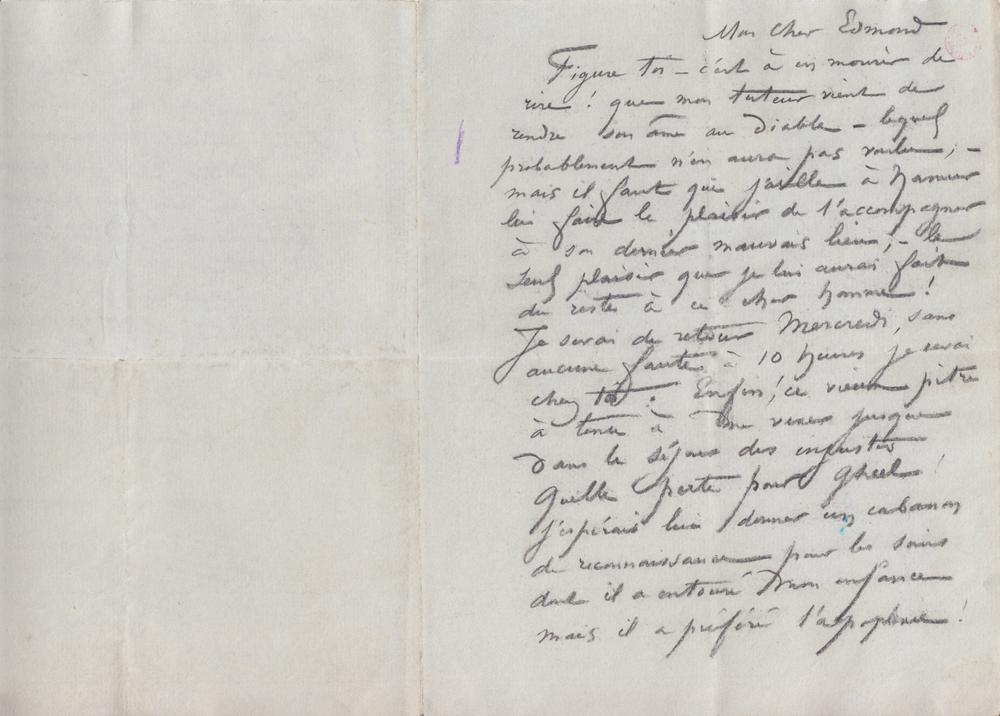 Mon cher Edmond
Figure toi – c'est à en mourir de
rire ! que mon tuteur vient de
rendre son âme au Diable – lequel
probablement n'en aura pas voulu ; –
mais il faut que j'aille à Namur
lui faire le plaisir de l'accompagner
à son dernier mauvais lieu ; – le
seul plaisir que je lui aurai fait
du reste à ce cher homme !
Je serai de retour Mercredi, sans
aucune faute à 10 heures je serai
chez toi. Enfin ! ce vieux pitre
à tenu à me vexer jusque
dans le séjour des injustes
Quelle perte pour Gheel !
j'espérais lui donner un cabanon
de reconnaissance pour les soins
dont il a entouré mon enfance
mais il a préféré l'apoplexie !